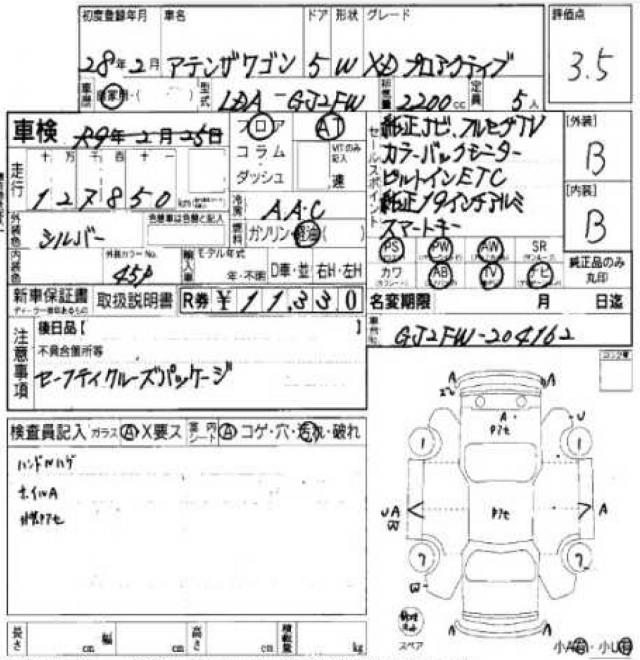 初度登録年月 車名 ドア 形状 グレード 評価点
28年2月 アテンザワゴン 5 W XD プロアクティブ 3.5
車歴 自家用・( ) 型式 LDA-GJ2FW 排気量 2200cc 定員 5人
車検 R9年2月25日 フロア AT
コラム ダッシュ VITのみ記入 連
走行 十 万 千 百 十 一
127850 km
冷房 AAC
外装色 シルバー 色替車は元色と記入 燃料 ガソリン・軽油( )
内装色 外装カラーNo. 45P 輸入車 モデル年式 年・不明 D車・並 右H・左H
セールスポイント
純正ナビ、フルセグTV
カラーバックモニター
ビルトインETC
純正19インチアルミ
スマートキー
[外装] B
[内装] B
PS PW AW SR
カワ AB TV ナビ
純正品のみ丸印
新車保証書 取扱説明書 R券 ¥11,330
名変期限 月 日迄
車台No. GJ2FW-204162
注意事項
後日品【
不具合箇所等
セーフティクルーズパッケージ
コーションプレート
検査員記入 ガラス A X要ス 内シート A コゲ・穴・汚れ・破れ
ハンドルハゲ
ホイルA
A A
A
U
アセ
1 1
UA
W
アセ
A
7 7
W
A A
スペア
小A・小U
長さ cm 幅 cm 高さ cm 積載量 kg